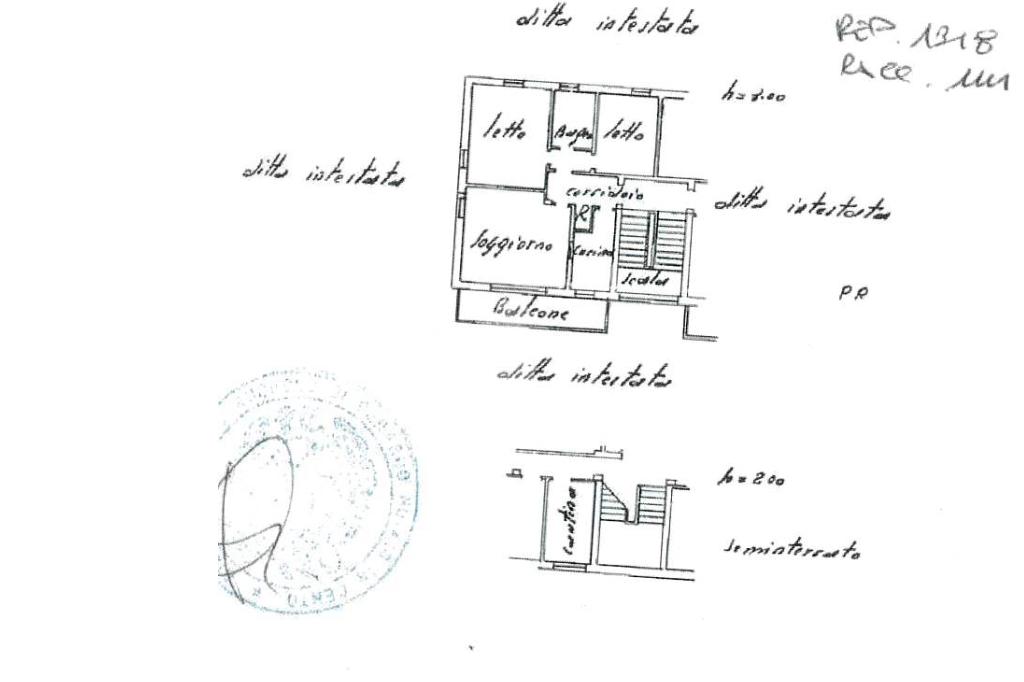 ditta intestata
REP. 1318
Racc. 1111
h=3.00
letto
Bagno
letto
ditta intestata
corridoio
ditta intestata
R
soggiorno
cucina
scala
Balcone
P.R
ditta intestata
h=200
cantina
Seminterrato
CENTO